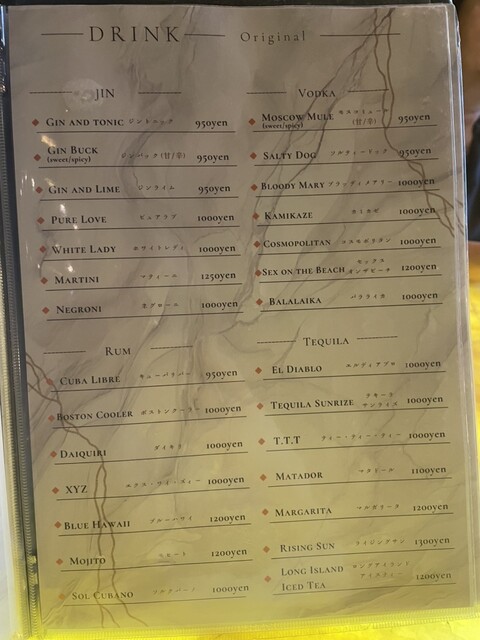 DRINK Original
JIN
GIN AND TONIC ジントニック 950yen
GIN BUCK ジンバック(甘/辛) 950yen
(sweet/spicy)
GIN AND LIME ジンライム 950yen
PURE LOVE ピュアラブ 1000yen
WHITE LADY ホワイトレディ 1000yen
MARTINI マティーニ 1250yen
NEGRONI ネグローニ 1000yen
VODKA
MOSCOW MULE モスコミュール 950yen
(sweet/spicy) (甘/辛)
SALTY DOG ソルティードッグ 950yen
BLOODY MARY ブラッディメアリー 1000yen
KAMIKAZE カミカゼ 1000yen
COSMOPOLITAN コスモポリタン 1000yen
SEX ON THE BEACH セックス オンザビーチ 1200yen
BALALAIKA バラライカ 1000yen
RUM
CUBA LIBRE キューバリバー 950yen
BOSTON COOLER ボストンクーラー 1000yen
DAIQUIRI ダイキリ 1000yen
XYZ エクス・ワイ・ズィー 1000yen
BLUE HAWAII ブルーハワイ 1200yen
MOJITO モヒート 1200yen
SOL CUBANO ソルクバーノ 1000yen
TEQUILA
EL DIABLO エルディアブロ 1000yen
TEQUILA SUNRIZE テキーラ サンライズ 1000yen
T.T.T ティー・ティー・ティー 1000yen
MATADOR マタドール 1100yen
MARGARITA マルガリータ 1200yen
RISING SUN ライジングサン 1300yen
LONG ISLAND ロングアイランド
ICED TEA アイスティー 1200yen